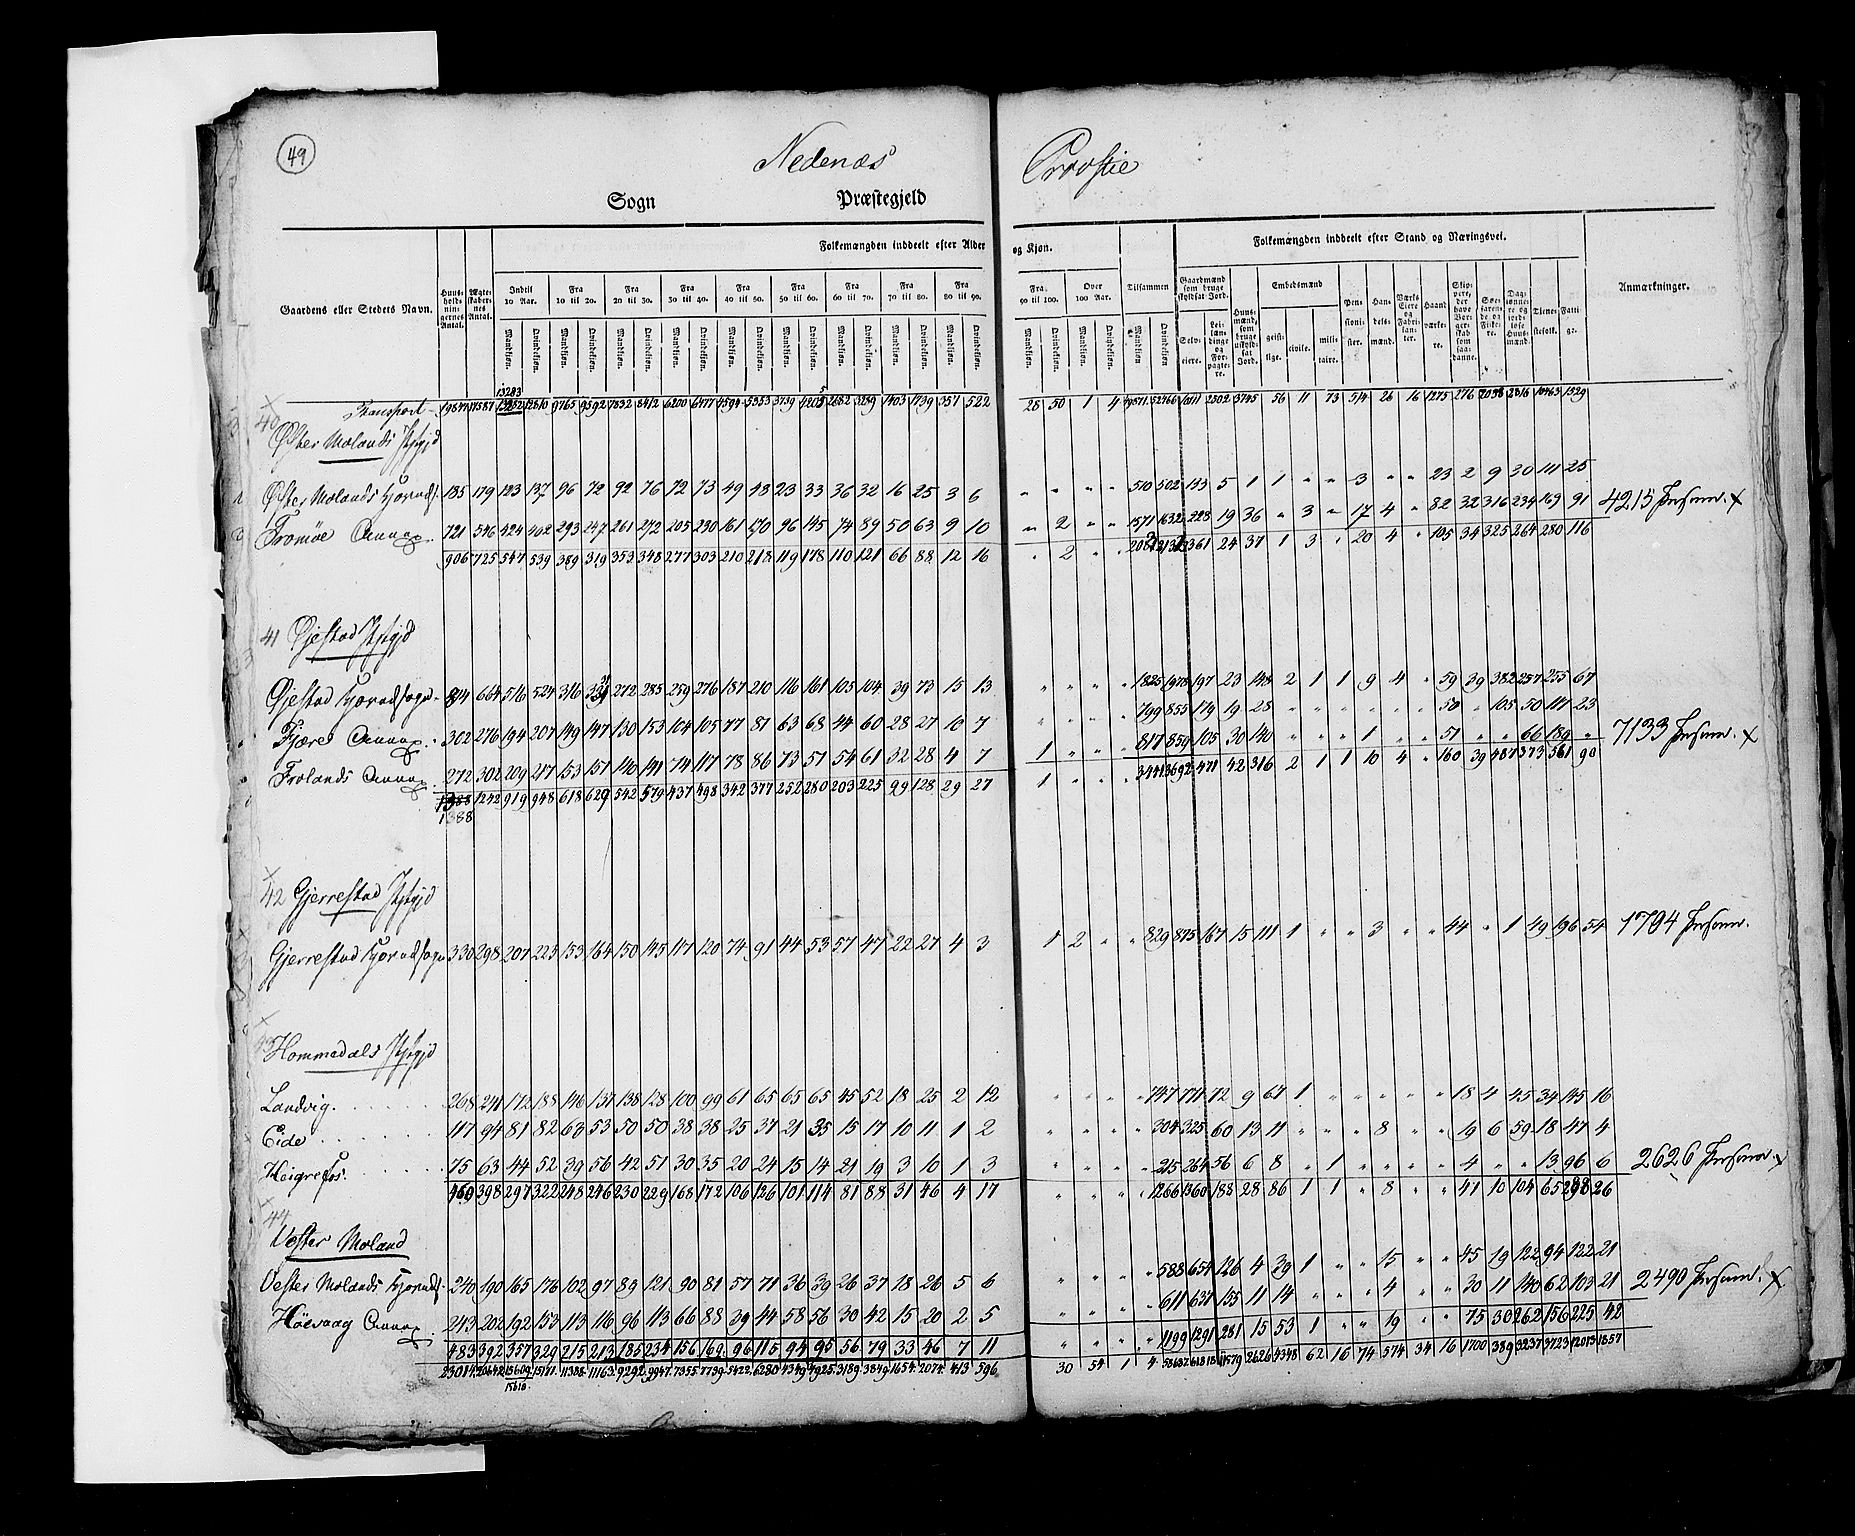 49
Nedenæs Provstie
Sogn Præstegjeld
Gaardens eller Stedets Navn.
Huusholdningernes Antal.
Ægteskabernes Antal.
Folkemængden inddeelt efter Alder og Kjøn.
Indtil 10 Aar. Fra 10 til 20. Fra 20 til 30. Fra 30 til 40. Fra 40 til 50. Fra 50 til 60. Fra 60 til 70. Fra 70 til 80. Fra 80 til 90. Fra 90 til 100. Over 100 Aar.
Mandkjøn. Qvindekjøn. Mandkjøn. Qvindekjøn. Mandkjøn. Qvindekjøn. Mandkjøn. Qvindekjøn. Mandkjøn. Qvindekjøn. Mandkjøn. Qvindekjøn. Mandkjøn. Qvindekjøn. Mandkjøn. Qvindekjøn. Mandkjøn. Qvindekjøn. Mandkjøn. Qvindekjøn. Mandkjøn. Qvindekjøn.
Tilsammen
Mandkjøn Qvindekjøn.
Folkemængden inddeelt efter Stand og Næringsvei.
Gaardmænd som bruge skyldsat Jord.
Selveiere. Leilændinge og Forpagtere.
Huusmænd, som bruge uskyldsat Jord.
Embedsmænd
geistlige. civile. militaire.
Pensionister.
Handelsmænd.
Værks Eiere og Fabrikanter.
Haandværkere.
Skippere, der have Borgerskab som saadanne.
Søefarende og Fiskere.
Daglønnere og jordløse Huusmænd.
Tjenestefolk.
Fattige.
Anmærkninger.
Transport
40
Øster Molands Pstgjd
Øster Molands Hoveds. 185 179 123 137 96 72 92 76 72 73 49 48 23 33 36 32 16 25 3 6 " " " " 510 502 133 5 1 1 " " 3 " " 23 2 9 30 111 25
Tromøe Annex. 721 546 424 402 293 247 261 272 205 230 161 170 96 145 74 89 50 63 9 10 " 2 " " 1571 1632 228 19 36 " 3 " 17 4 " 82 32 316 234 169 91 4213
906 725 547 539 389 319 353 348 277 303 210 218 119 178 110 121 66 88 12 16 " 2 " " 361 24 37 1 3 " 20 4 " 105 34 325 264 280 116
41 Øjestad Pstgjd
Øjestad Hovedsogn 814 664 516 524 316 272 285 259 276 187 210 116 161 105 104 39 73 15 13 " " " " 1825 1978 197 23 148 2 1 1 9 4 " 59 39 382 257 255 67
Fjære Annex. 302 276 194 207 149 147 130 153 104 105 77 81 63 68 44 60 28 27 10 7 " " " " 799 855 179 19 28 " " " " " " 50 " 105 50 117 23
Frolands Annex 272 302 209 217 153 151 140 141 74 117 78 86 73 51 54 61 32 28 4 7 1 " " " 817 859 105 30 140 " " " 1 " " 51 " " 66 189 " 7133
1388 1242 919 948 618 629 542 579 437 498 342 377 252 280 203 225 99 128 29 27 1 " " " 3441 3692 471 42 316 2 1 1 10 4 " 160 39 487 373 561 90
1388
42 Gjerrestad Pstgjd
Gjerrestad Hovedsogn 330 298 207 225 153 164 150 145 117 120 74 91 44 53 57 47 22 27 4 3 1 2 " " 829 875 167 15 111 1 " " 3 " " 44 " 1 49 196 54 1794
43
Hommedals Pstgjd
Landvig. 268 241 172 188 146 137 138 128 100 99 61 65 65 65 45 52 18 25 2 12 " " " " 747 771 72 9 67 1 " " " " " 18 4 45 34 145 16
Eide 117 94 81 82 63 53 50 50 38 38 25 37 21 35 15 17 10 11 1 2 " " " " 304 325 60 13 11 " " " 8 " " 19 6 59 18 47 4
75 63 44 52 39 56 42 51 30 35 20 24 15 14 21 19 3 10 1 3 " " " " 215 264 56 6 8 " 1 " " " " 4 " " 13 96 6 2626
460 398 297 322 248 246 230 229 168 172 106 126 101 114 81 88 31 46 4 17 " " " " 1266 1360 188 28 86 1 1 " 8 " " 41 10 104 65 288 26
44
Vester Moland
Vester Molands Hoveds. 240 190 165 176 102 97 89 121 90 81 57 71 36 39 26 37 18 26 5 6 " " " " 588 654 126 4 39 1 " " 15 " " 45 19 122 94 122 21
Høevaag Annex. 243 202 192 153 113 116 96 113 66 88 39 44 58 56 30 42 15 20 2 5 " " " " 611 637 155 11 14 " " " 4 " " 30 11 140 62 103 21 2490
483 392 357 329 215 213 185 234 156 169 96 115 94 95 56 79 33 46 7 11 " " " " 1199 1291 281 15 53 1 " " 19 " " 75 30 262 156 225 42
23084 20642 15609 15171 11388 11163 9292 9947 7355 7739 5422 6280 4349 4925 3189 3849 1654 2074 413 596 30 54 1 4 11579 2626 4348 62 16 74 574 34 16 1700 389 3237 3723 12013 1857
15610